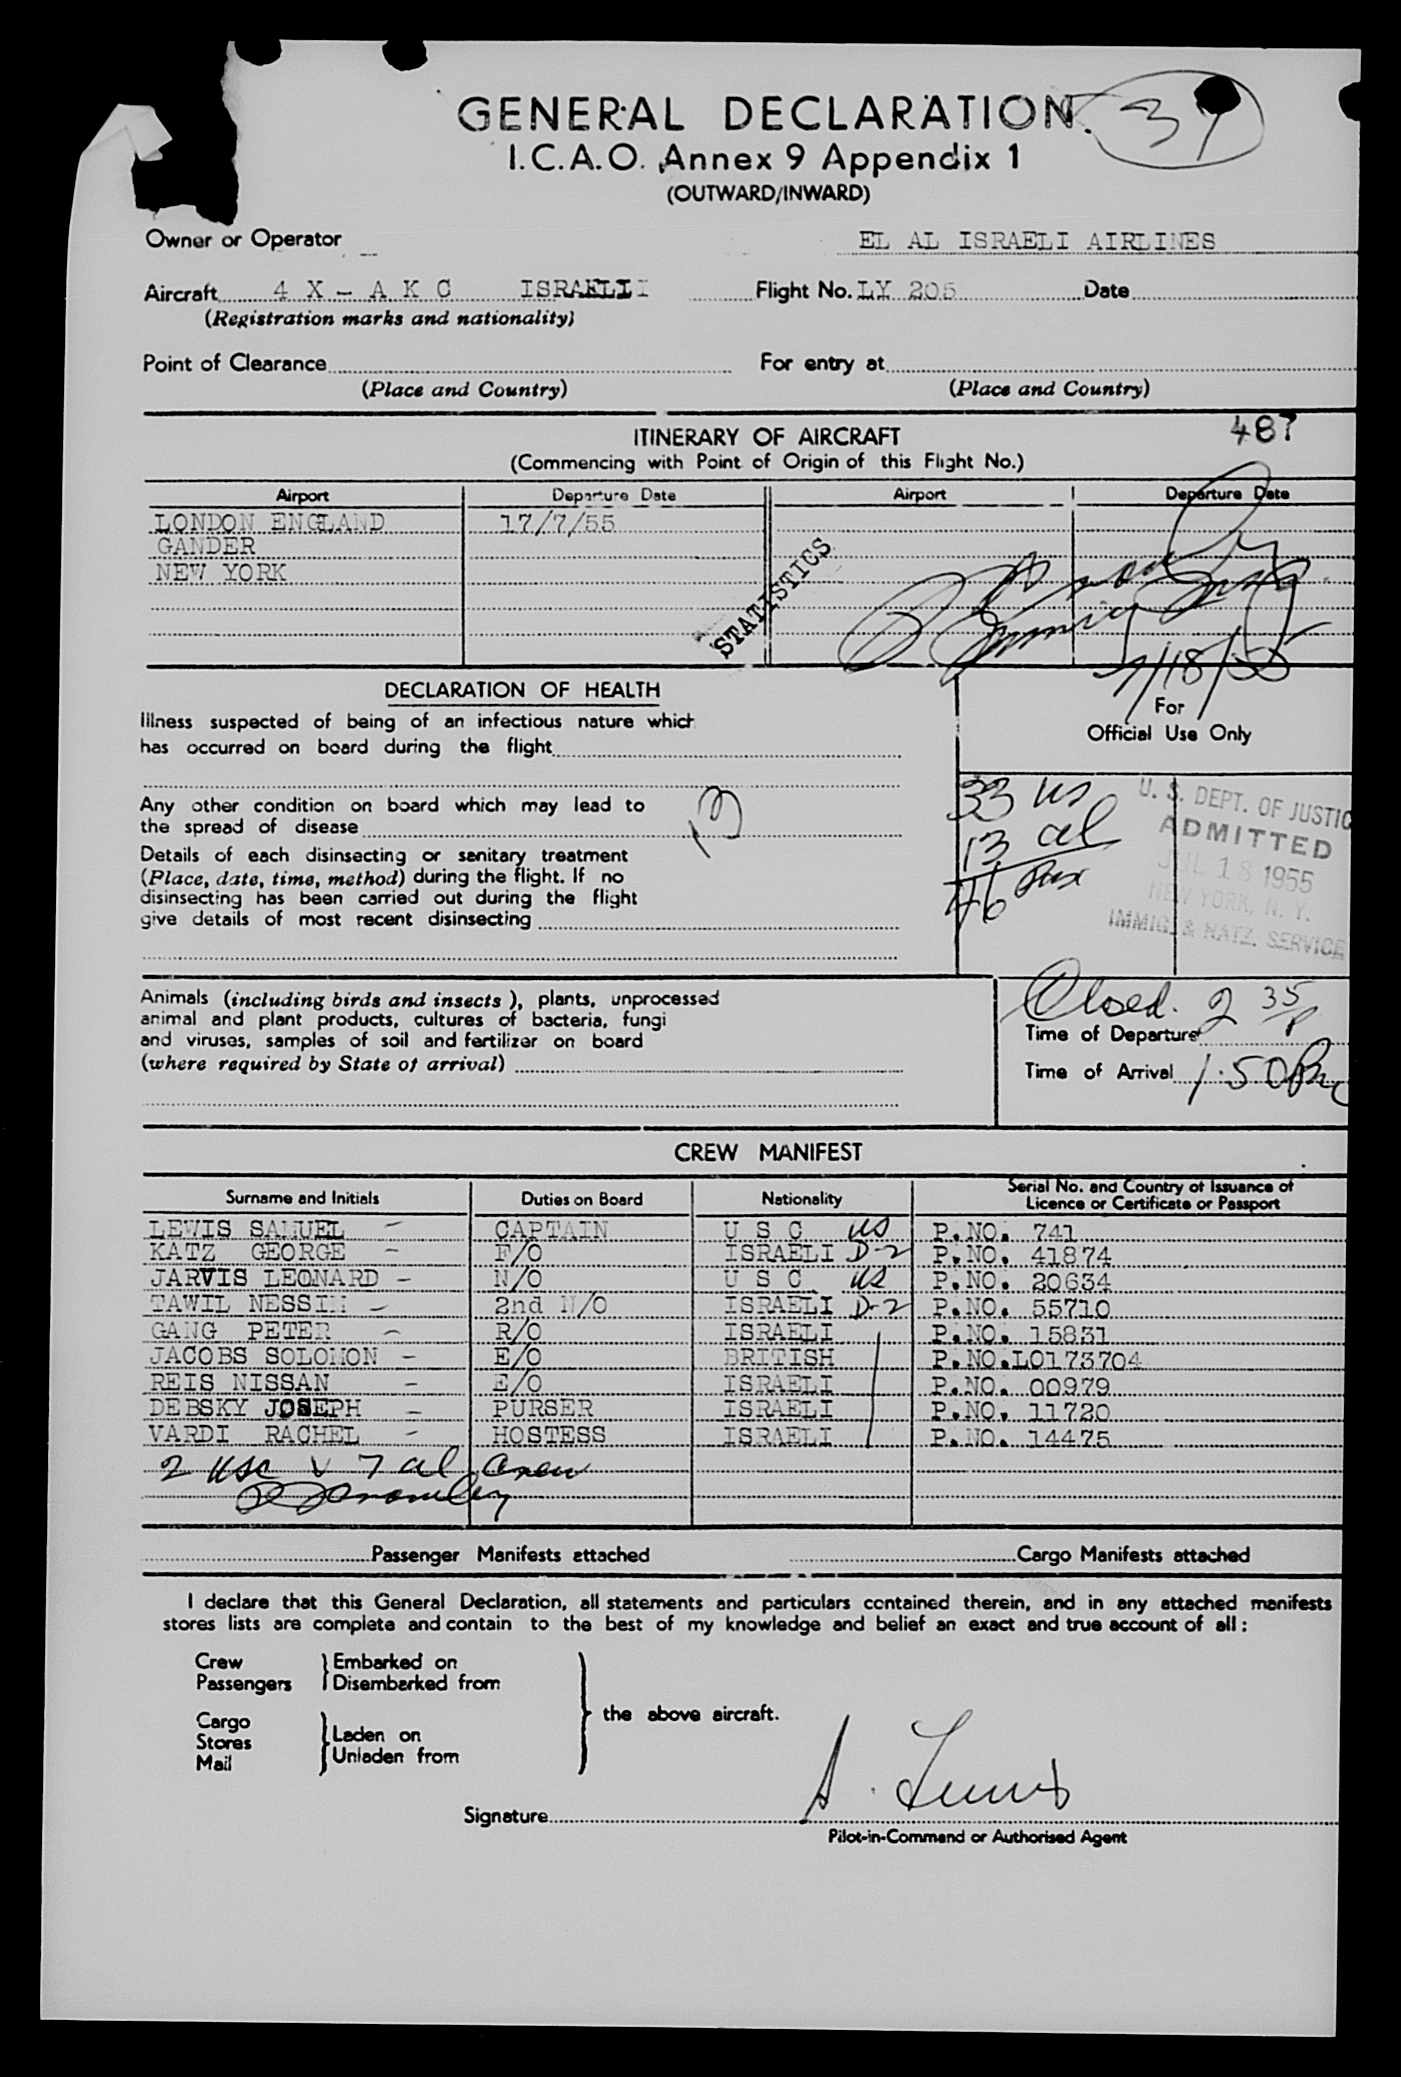 GENERAL DECLARATION
I.C.A.O. Annex 9 Appendix 1
(OUTWARD/INWARD)
Owner or Operator EL AL ISRAELI AIRLINES
Aircraft 4 X - A K C ISRAELI Flight No. LY 205 Date
(Registration marks and nationality)
Point of Clearance For entry at
(Place and Country) (Place and Country)
ITINERARY OF AIRCRAFT 487
(Commencing with Point of Origin of this Flight No.)
Airport Departure Date Airport Departure Date
LONDON ENGLAND 17/7/55
GANDER
NEW YORK
STATISTICS
7/18/55
DECLARATION OF HEALTH
For
Official Use Only
Illness suspected of being of an infectious nature which
has occurred on board during the flight
Any other condition on board which may lead to
the spread of disease
Details of each disinsecting or sanitary treatment
(Place, date, time, method) during the flight. If no
disinsecting has been carried out during the flight
give details of most recent disinsecting
33 us
13 al
46 Pax
U. S. DEPT. OF JUSTIC
ADMITTED
JUL 18 1955
NEW YORK, N. Y.
IMMIG. & NATZ. SERVICE
Animals (including birds and insects), plants, unprocessed
animal and plant products, cultures of bacteria, fungi
and viruses, samples of soil and fertilizer on board
(where required by State of arrival)
Closed. 2 35 P
Time of Departure
Time of Arrival 1.50 Pm
CREW MANIFEST
Surname and Initials Duties on Board Nationality Serial No. and Country of Issuance of
Licence or Certificate or Passport
LEWIS SAMUEL - CAPTAIN U S C us P.NO. 741
KATZ GEORGE - F/O ISRAELI D-2 P.NO. 41874
JARVIS LEONARD - N/O U S C us P.NO. 20634
TAWIL NESSIM - 2nd N/O ISRAELI D-2 P.NO. 55710
GANG PETER - R/O ISRAELI P.NO. 15831
JACOBS SOLOMON - E/O BRITISH P.NO.L0173704
REIS NISSAN - E/O ISRAELI P.NO. 00979
DEBSKY JOSEPH - PURSER ISRAELI P.NO. 11720
VARDI RACHEL - HOSTESS ISRAELI P.NO. 14475
2 usc v 7 al crew
Passenger Manifests attached Cargo Manifests attached
I declare that this General Declaration, all statements and particulars contained therein, and in any attached manifests
stores lists are complete and contain to the best of my knowledge and belief an exact and true account of all :
Crew Embarked on
Passengers Disembarked from
the above aircraft.
Cargo
Stores Laden on
Mail Unladen from
Signature S. Lewis
Pilot-in-Command or Authorised Agent